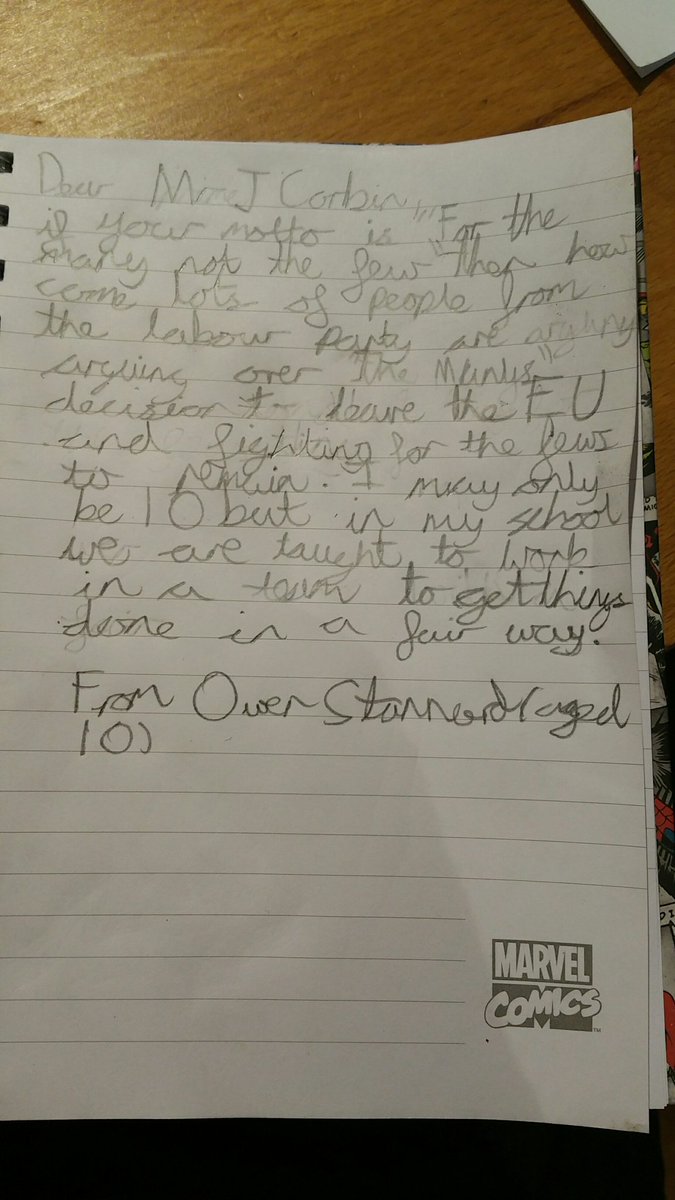 Dear Mr J Corbin
if your motto is "For the
many not the few" then how
come lots of people from
the labour party are
arguing over "the Manys"
decision to leave the EU
and fighting for the fews
to remain. I may only
be 10 but in my school
we are taught to work
in a team to get things
done in a fair way.
From Owen Stannard (aged
10)
MARVEL
COMICS